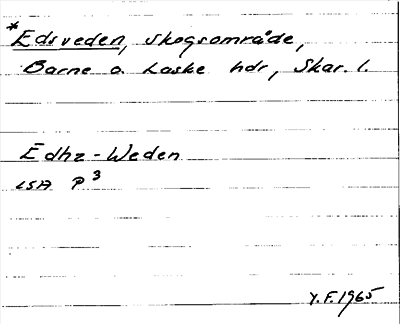 *Edsveden, skogsområde,
Barne o. Laske hdr, Skar. l.
Edhz-Weden
LSA P3
Y.F. 1965